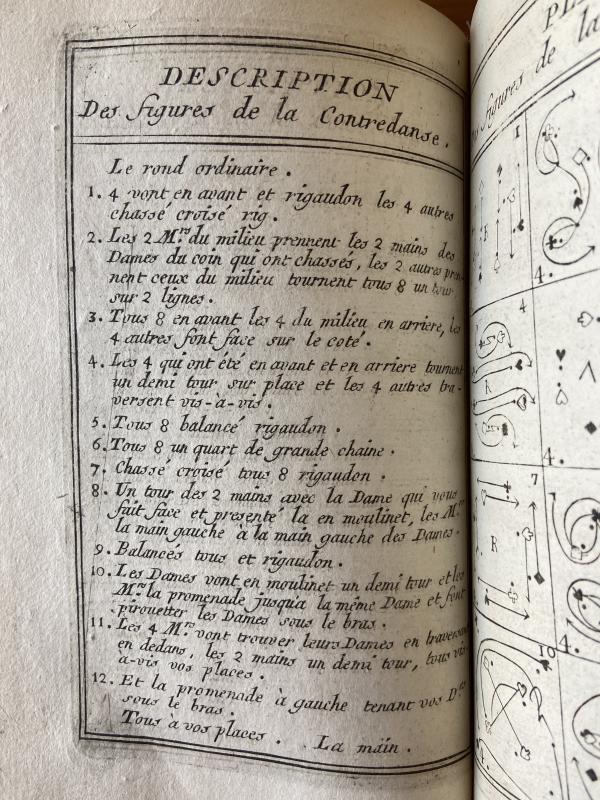 DESCRIPTION
Des figures de la Contredanse.
Le rond ordinaire.
1. 4 vont en avant et rigaudon les 4 autres
chassé croisé rig.
2. Les 2 Mrs du milieu prennent les 2 mains des
Dames du coin qui ont chassés, les 2 autres
nent ceux du milieu tournent tous 8 un tour
sur 2 lignes.
3. Tous 8 en avant les 4 du milieu en arriere, les
4 autres font face sur le coté.
4. Les 4 qui ont été en avant et en arriere tournent
un demi tour sur place et les 4 autres tra-
versent vis-à-vis.
5. Tous 8 balancé rigaudon.
6. Tous 8 un quart de grande chaine.
7. Chassé croisé tous 8 rigaudon.
8. Un tour des 2 mains avec la Dame qui vous
fait face et presenté la en moulinet, les
la main gauche à la main gauche des Dames.
9. Balancés tous et rigaudon.
10. Les Dames vont en moulinet un demi tour et les
Mrs la promenade jusqu'a la même Dame et font
pirouetter les Dames sous le bras.
11. Les 4 Mrs vont trouver leurs Dames en traversant
en dedans, les 2 mains un demi tour, tous vis-
à-vis vos places.
12. Et la promenade à gauche tenant vos Des
sous le bras.
Tous à vos places. La main.
figures de la
1
4.
4
R
4.
7
R
10
4.